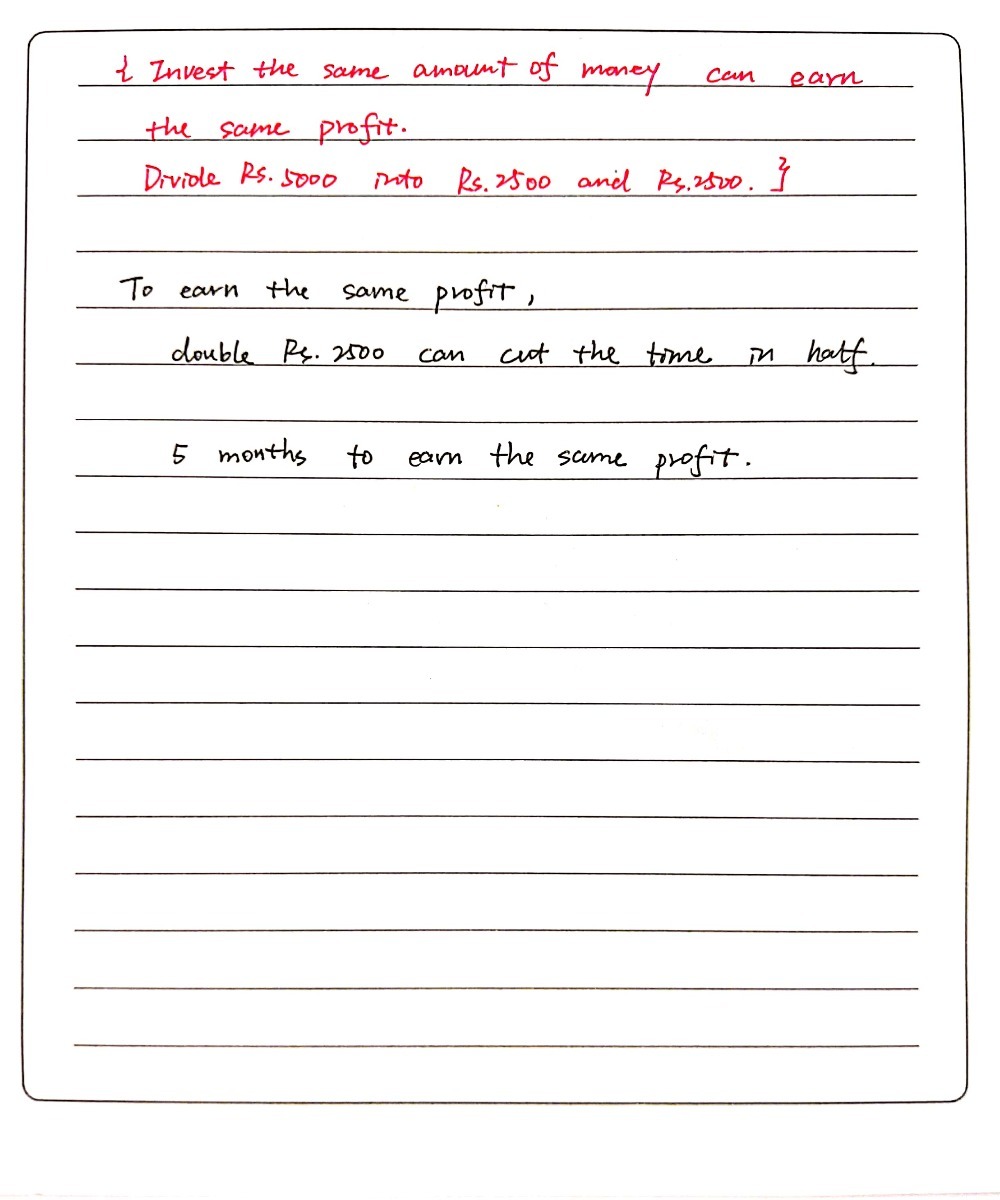 { Invest the same amount of money can earn
the same profit.
Divide Rs. 5000 into Rs. 2500 and Rs. 2500. }
To earn the same profit,
double Rs. 2500 can cut the time in half.
5 months to earn the same profit.